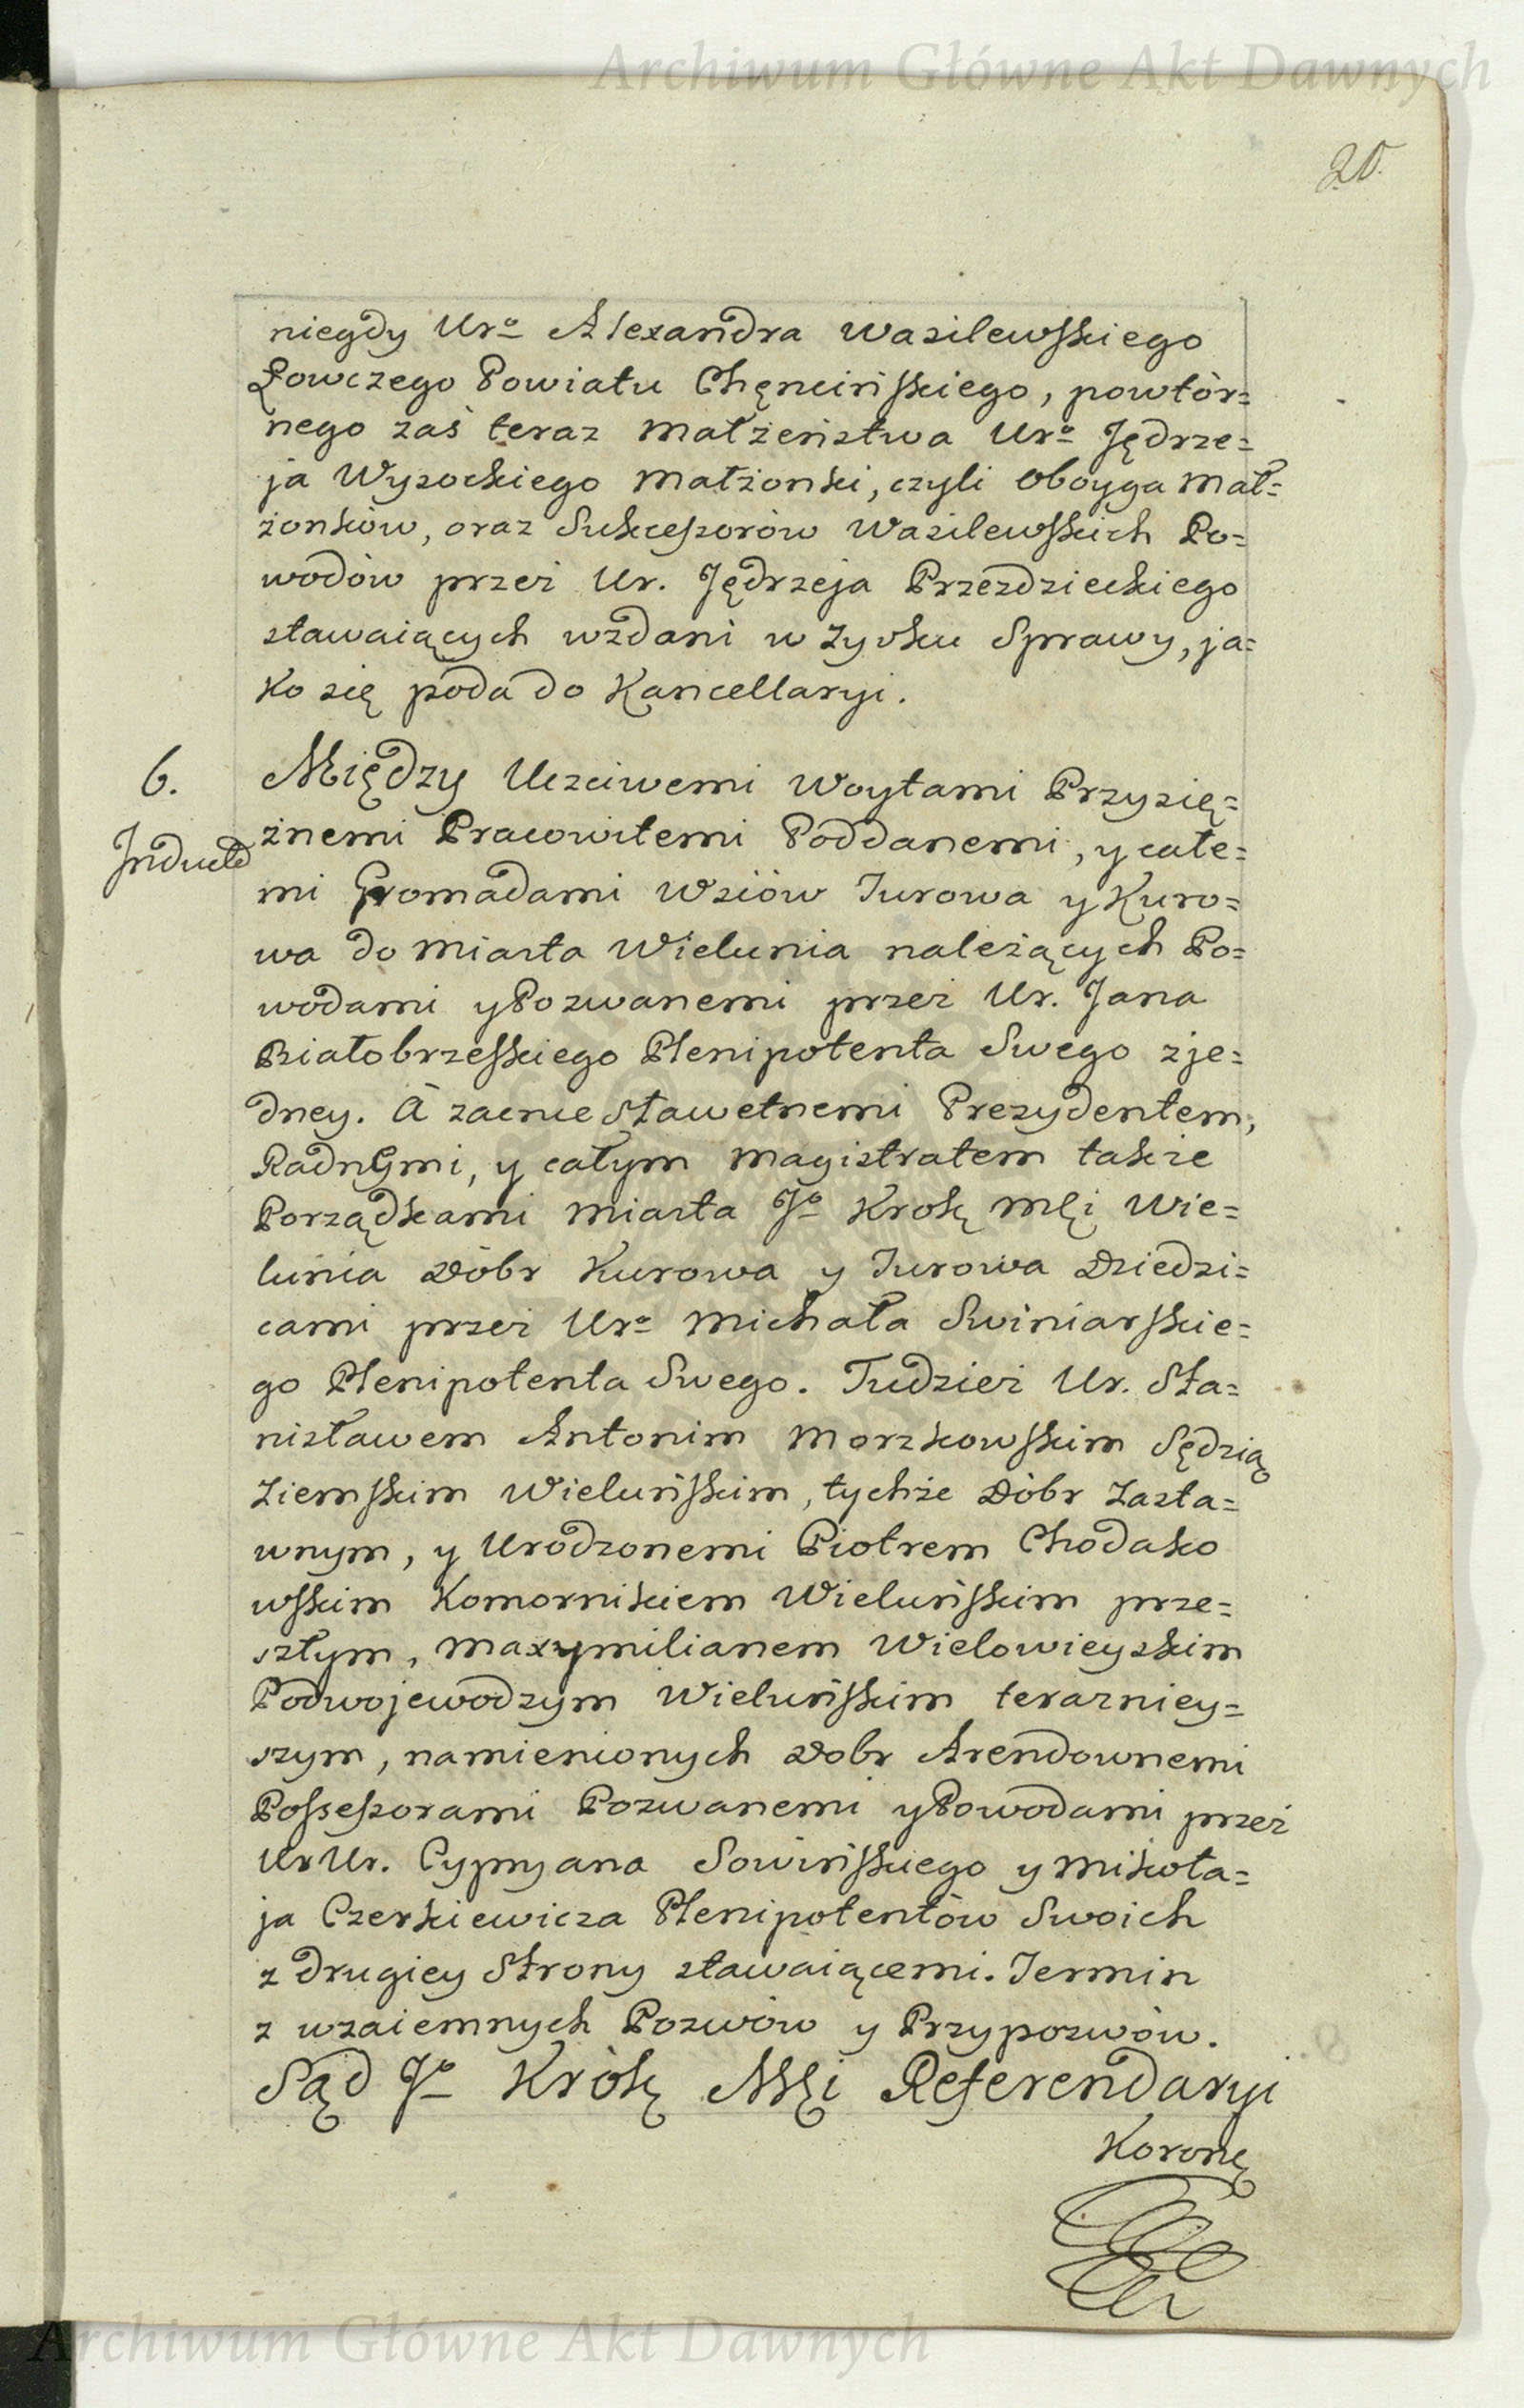 Archiwum Główne Akt Dawnych
20.
niegdy Uro Alexandra Wasilewskiego
Łowczego Powiatu Chęncińskiego, powtór=
nego zaś teraz Małżeństwa Uro Jędrze=
ja Wysockiego Małżonki, czyli oboyga Mał=
żonków, oraz Sukcessorów Wasilewskich Po=
wodów przez Ur. Jędrzeja Przezdzieckiego
stawaiących wzdani w zysku Sprawy, ja=
ko się poda do Kancellaryi.
6. Między Uczciwemi Woytami Przysię=
Induct żnemi Pracowitemi Poddanemi, y całe=
mi Gromadami Wsiów Turowa y Kuro=
wa do Miasta Wielunia należących Po=
wodami y Pozwanemi przez Ur. Jana
Białobrzeskiego Plenipotenta Swego z je=
dney. A zacnie Sławetnemi Prezydentem,
Radnemi, y całym Magistratem także
Porządkami Miasta Jo Krolę Mci Wie=
lunia Dóbr Kurowa y Turowa Dziedzi=
cami przez Uro Michała Swiniarskie=
go Plenipotenta Swego. Tudziez Ur. Sta=
nisławem Antonim Morzkowskim Sędzią
Ziemskim Wieluńskim, tychże Dóbr Zasta=
wnym, y Urodzonemi Piotrem Chodako
wskim Komornikiem Wieluńskim prze=
szłym, Maxymilianem Wielowieyskim
Podwojewodzym Wieluńskim terazniey=
szym, namienionych Dobr Arendownemi
Possessorami Pozwanemi y Powodami przez
Ur Ur. Cypryana Sowińskiego y Mikoła=
ja Czerkiewicza Plenipotentów Swoich
z drugiey Strony stawaiącemi. Termin
z wzaiemnych Pozwów y Przypozwów.
Sąd Jo Królę Mci Referendaryi
Koronę
Archiwum Główne Akt Dawnych